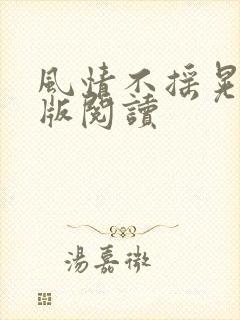 風情不搖晃
版閱讀
湯嘉微